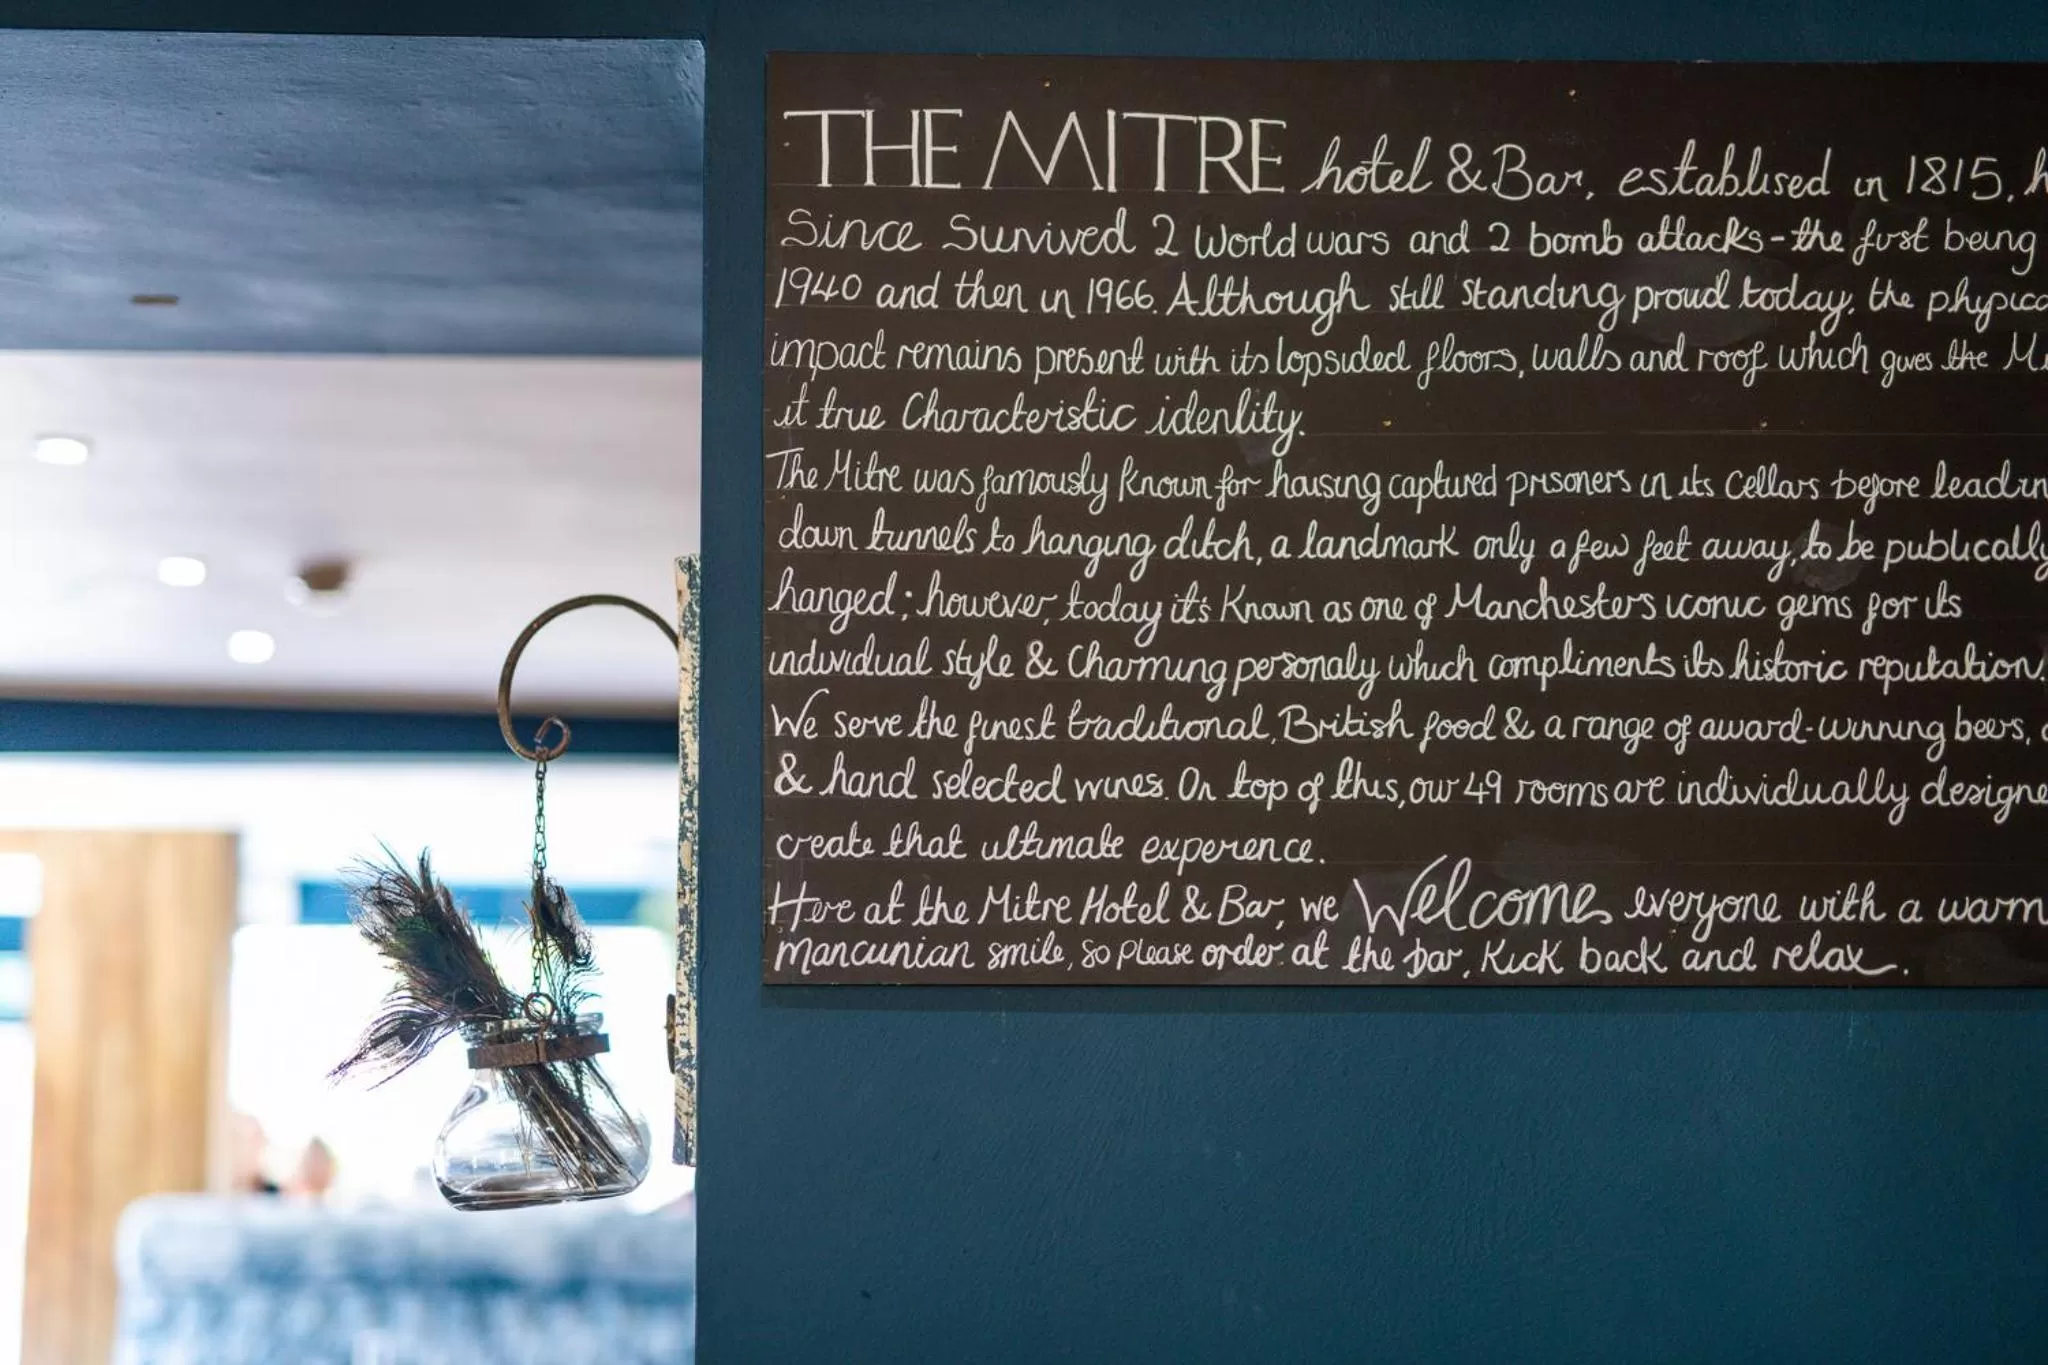 THE MITRE hotel & Bar, established in 1815, h
Since Survived 2 World wars and 2 bomb attacks - the first being
1940 and then in 1966. Although still standing proud today, the physica
impact remains present with its lopsided floors, walls and roof which gives the Mi
it true Characteristic identity.
The Mitre was famously known for housing captured prisoners in its Cellars before leadin
down tunnels to hanging ditch, a landmark only a few feet away, to be publically
hanged; however, today it's Known as one of Manchester's iconic gems for its
individual style & Charming personaly which compliments its historic reputation.
We serve the finest traditional, British food & a range of award-winning beers,
& hand selected wines. On top of this, our 49 rooms are individually designe
create that ultimate experience.
Here at the Mitre Hotel & Bar, we Welcome everyone with a warm
mancunian smile, so please order at the bar, Kick back and relax.